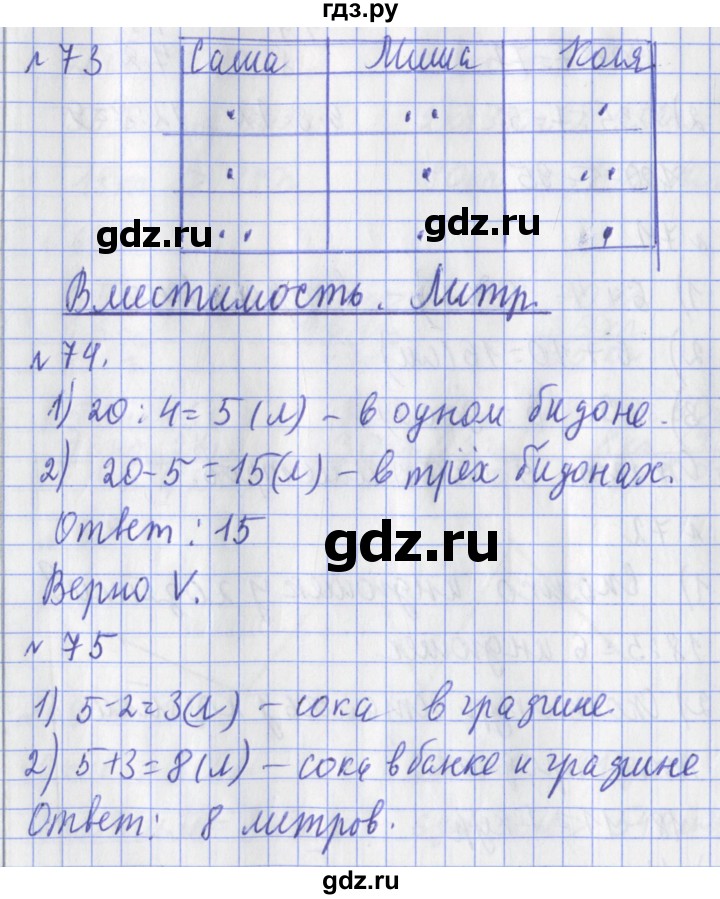 гдз.ру
№73 Саша Миша Коля
gdz.ru gdz.ru
Вместимость. Литр.
№74.
1) 20 : 4 = 5 (л) – в одном бидоне.
2) 20-5 = 15(л) – в трёх бидонах.
Ответ : 15
gdz.ru
Верно V.
№75
1) 5-2=3(л) – сока в графине
2) 5+3=8(л) – сока в банке и графине
Ответ: 8 литров.
gdz.ru